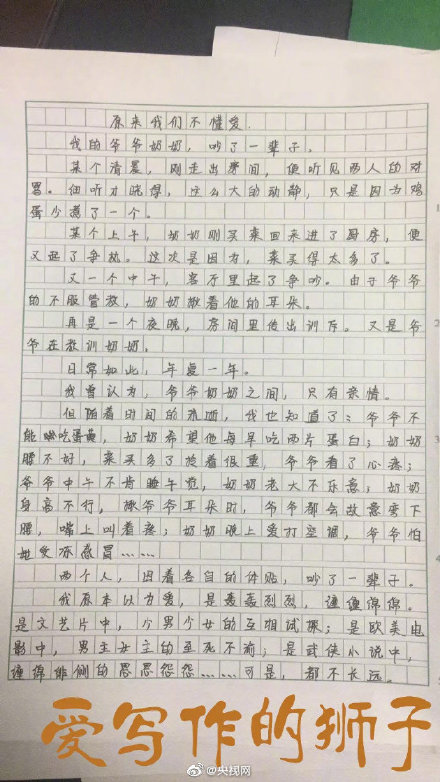 原来我们不懂爱.
我的爷爷奶奶，吵了一辈子。
某个清晨，刚走出房间，便听见两人的对
骂。但听力晓得，这么大的动静，只是因为鸡
蛋少煮了一个。
某个上午，奶奶刚买菜回来进了厨房，便
又起了争执。这次是因为，菜买得太多了。
又一个中午，客厅里起了争吵。由于爷爷
的不服管教，奶奶揪着他的耳朵。
再是一个夜晚，房间里传出训斥。又是爷
爷在教训奶奶。
日常如此，年复一年。
我曾认为，爷爷奶奶之间，只有亲情。
但随着时间的流逝，我也知道了：爷爷不
能吃蛋黄，奶奶希望他每早吃两片蛋白；奶奶
腰不好，菜买多了拎着很重，爷爷看了心疼；
爷爷中午不肯睡午觉，奶奶老大不乐意；奶奶
身高不行，揪爷爷耳朵时，爷爷都会故意弯下
腰，嘴上叫着疼；奶奶晚上爱打空调，爷爷怕
她受冻感冒……
两个人，因着各自的体贴，吵了一辈子。
我原本以为爱，是轰轰烈烈，缠缠绵绵。
是文艺片中，少男少女的互相试探；是欧美电
影中，男主女主的至死不渝；是武侠小说中，
缠绵悱恻的恩恩怨怨……可是，都不长远。
爱写作的狮子
@央视网